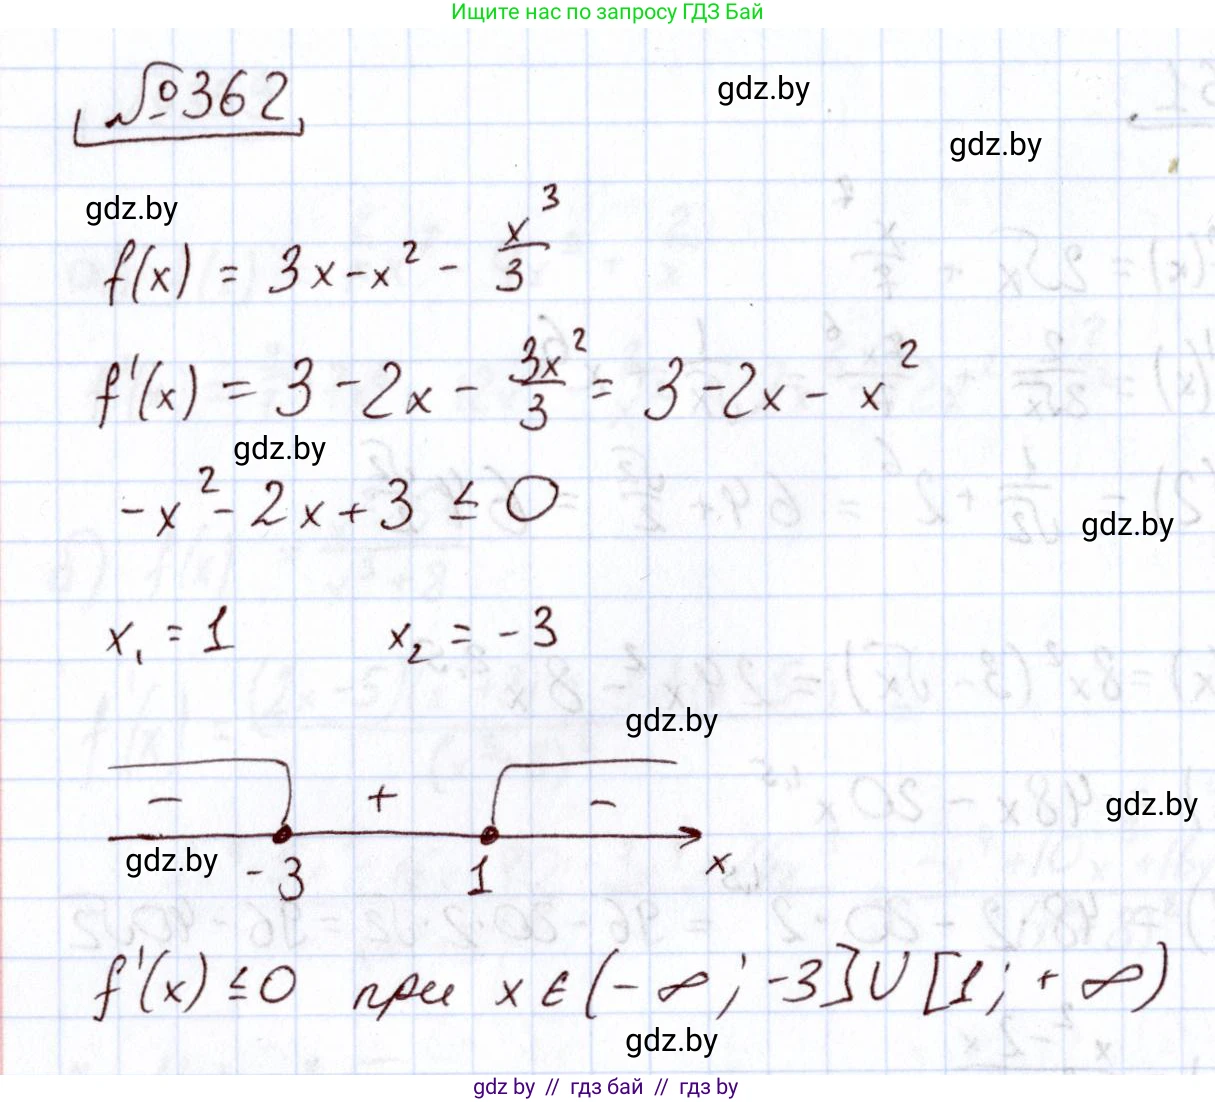 Ищите нас по запросу ГДЗ Бай
№362
gdz.by
gdz.by
gdz.by
f(x) = 3x - x² - x³/3
f'(x) = 3 - 2x - 3x²/3 = 3 - 2x - x²
gdz.by
-x² - 2x + 3 ≤ 0
gdz.by
x₁ = 1 x₂ = -3
gdz.by
- + -
gdz.by
gdz.by
-3 1 x
f'(x) ≤ 0 при x ∈ (-∞; -3] ∪ [1; +∞)
gdz.by
gdz by // гдз бай // гдз by